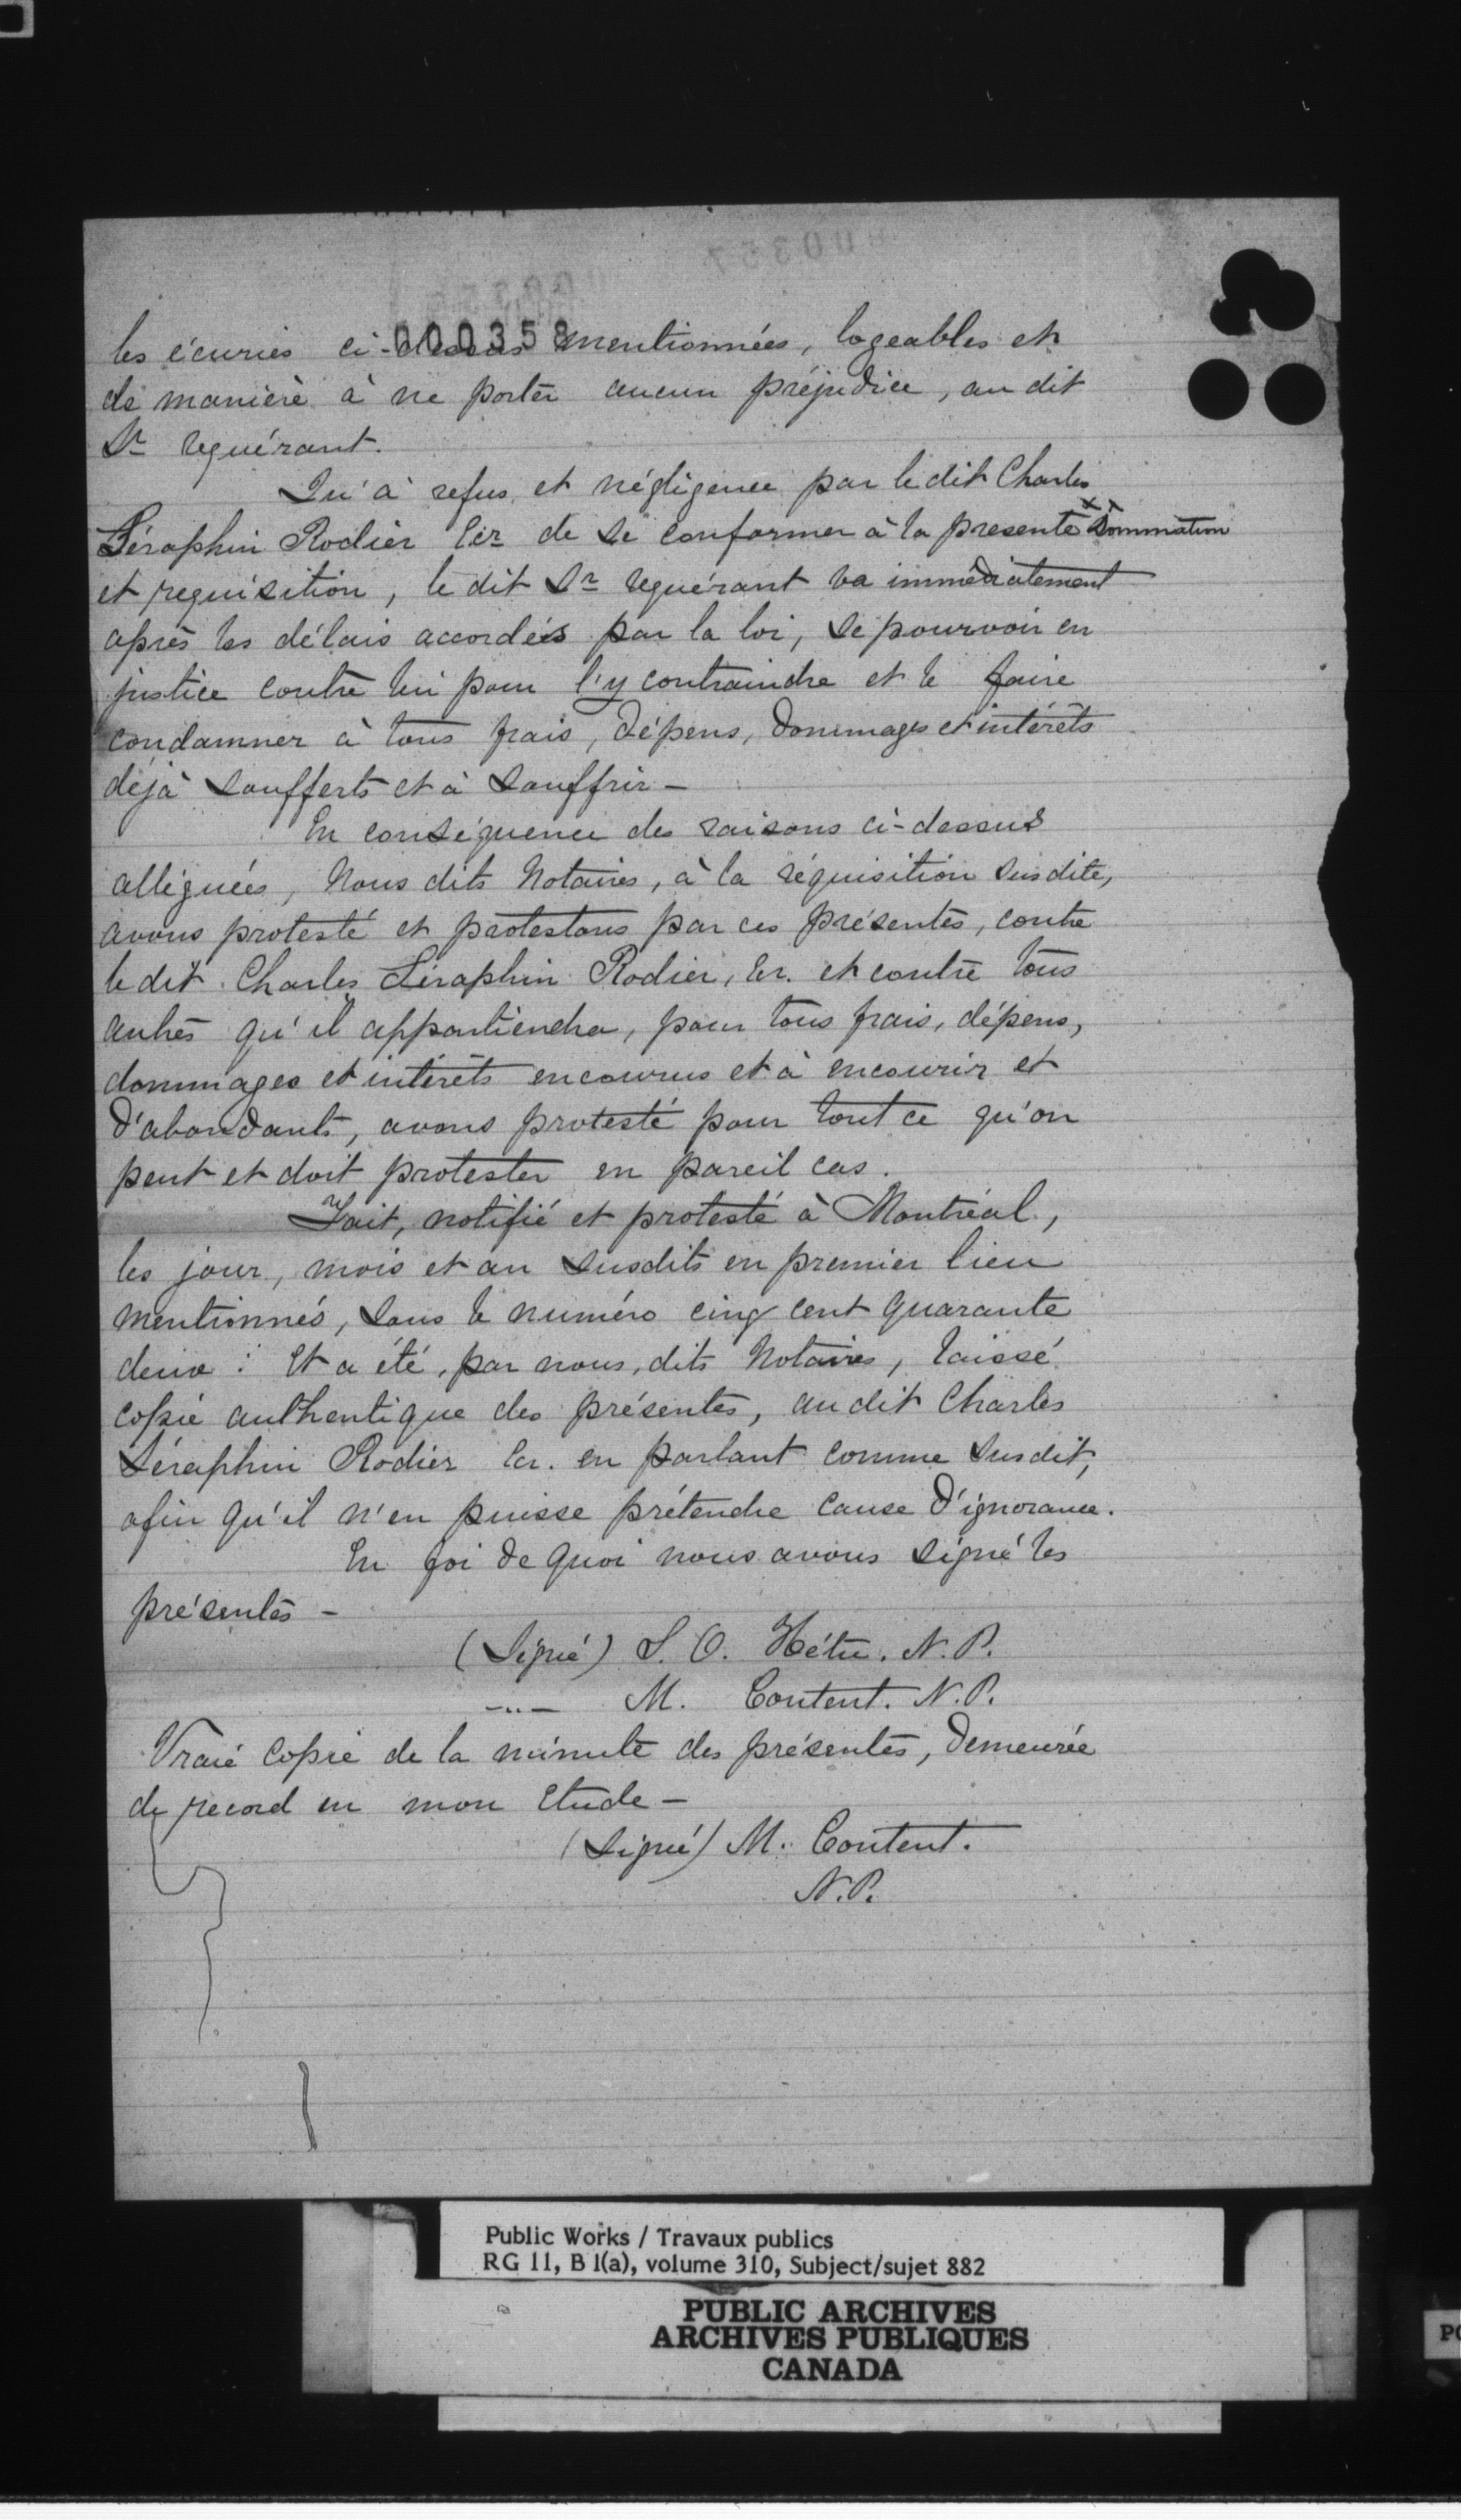 000358
les écuries ci-dessus mentionnées, logeables et
de manière à ne porter aucun préjudice, au dit
Sr requérant.
Qu'à refus et négligence par le dit Charles
Séraphin Rodier Ecr de se conformer à la presente sommation
et requisition, le dit Sr requérant va immédiatement
après les délais accordés par la loi, se pourvoir en
justice contre lui pour l'y contraindre et le faire
condamner à tous frais, dépens, dommages et intérêts
déjà soufferts et à souffrir -
En conséquence des raisons ci-dessus
alléguées, Nous dits Notaires, à la réquisition susdite,
avons protesté et protestons par ces présentes, contre
le dit Charles Séraphin Rodier, Ecr. et contre tous
autres qu'il appartiendra, pour tous frais, dépens,
dommages et intérêts encourus et à encourir et
d'abondants, avons protesté pour tout ce qu'on
peut et doit protester en pareil cas.
Fait, notifié et protesté à Montréal,
les jour, mois et an susdits en premier lieu
mentionnés, sous le numéro cinq cent quarante
deux : Et a été, par nous, dits Notaires, laissé
copie authentique des présentes, au dit Charles
Séraphin Rodier Ecr. en parlant comme susdit,
afin qu'il n'en puisse prétendre cause d'ignorance.
En foi de quoi nous avons signé les
présentes -
(Signé) L. O. Hétu. N.P.
-"- M. Content. N.P.
Vraie copie de la minute des présentes, demeurée
de record en mon Etude -
(Signé) M. Content.
N.P.
Public Works / Travaux publics
RG 11, B 1(a), volume 310, Subject/sujet 882
PUBLIC ARCHIVES
ARCHIVES PUBLIQUES
CANADA